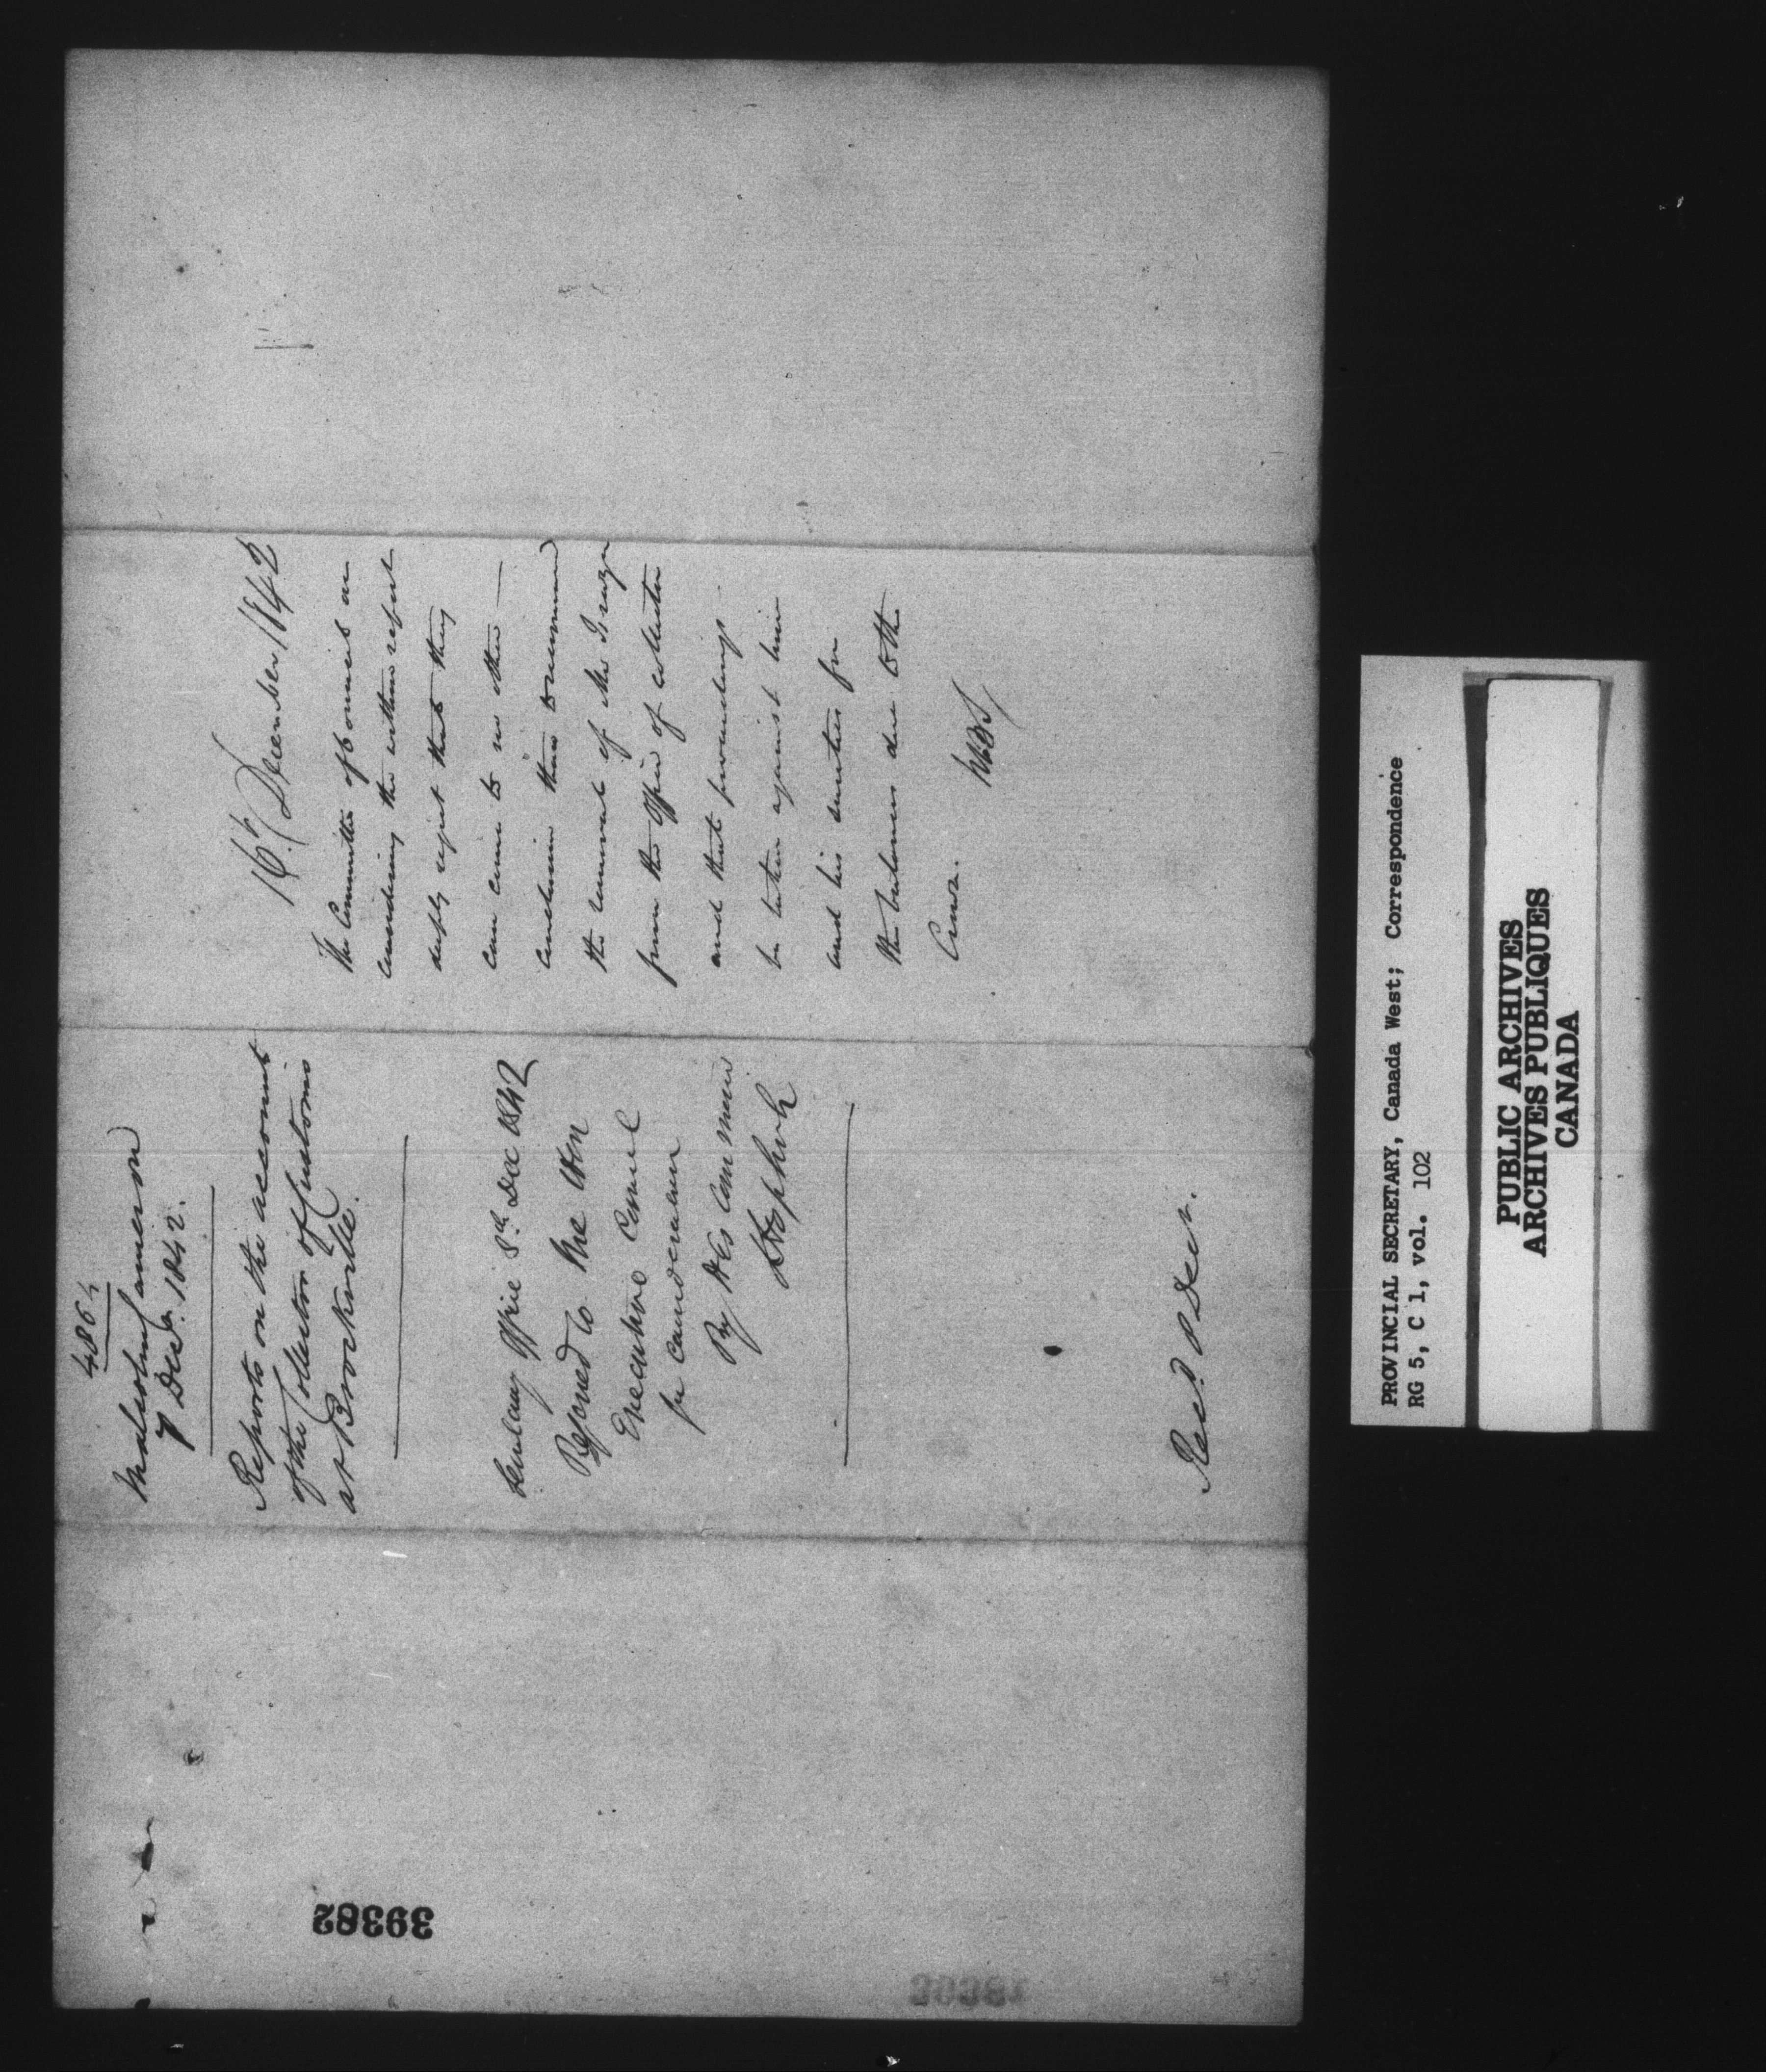 4864
Malcolm Cameron
7 Decr. 1842.
Reports on the accounts
of the Collector of Customs
at Brockville.
Secretary Office 8th Dec 1842
Referred to the Hon
Executive Council
for Consideration
By His Command
Recd. 8 Decr.
16th December 1842
The Committee of Council on
considering the within report
deeply regret that they
can come to no other
conclusion than to recommend
the removal of Mr
from the office of collector
and that proceedings
be taken against him
and his sureties for
the balances due to the
Crown.
39382
39381
PROVINCIAL SECRETARY, Canada West; Correspondence
RG 5, C 1, vol. 102
PUBLIC ARCHIVES
ARCHIVES PUBLIQUES
CANADA